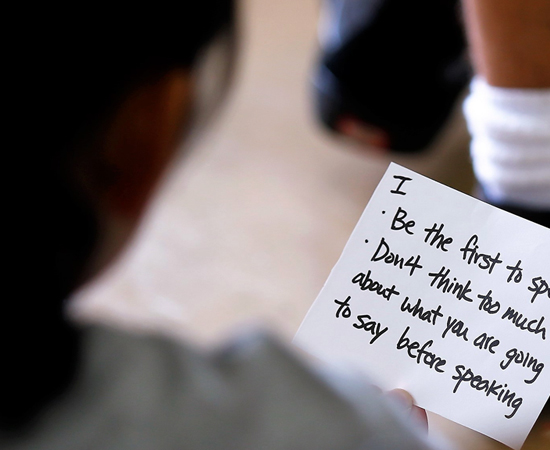 I
· Be the first to sp
· Don4 think too much
about what you are going
to say before speaking